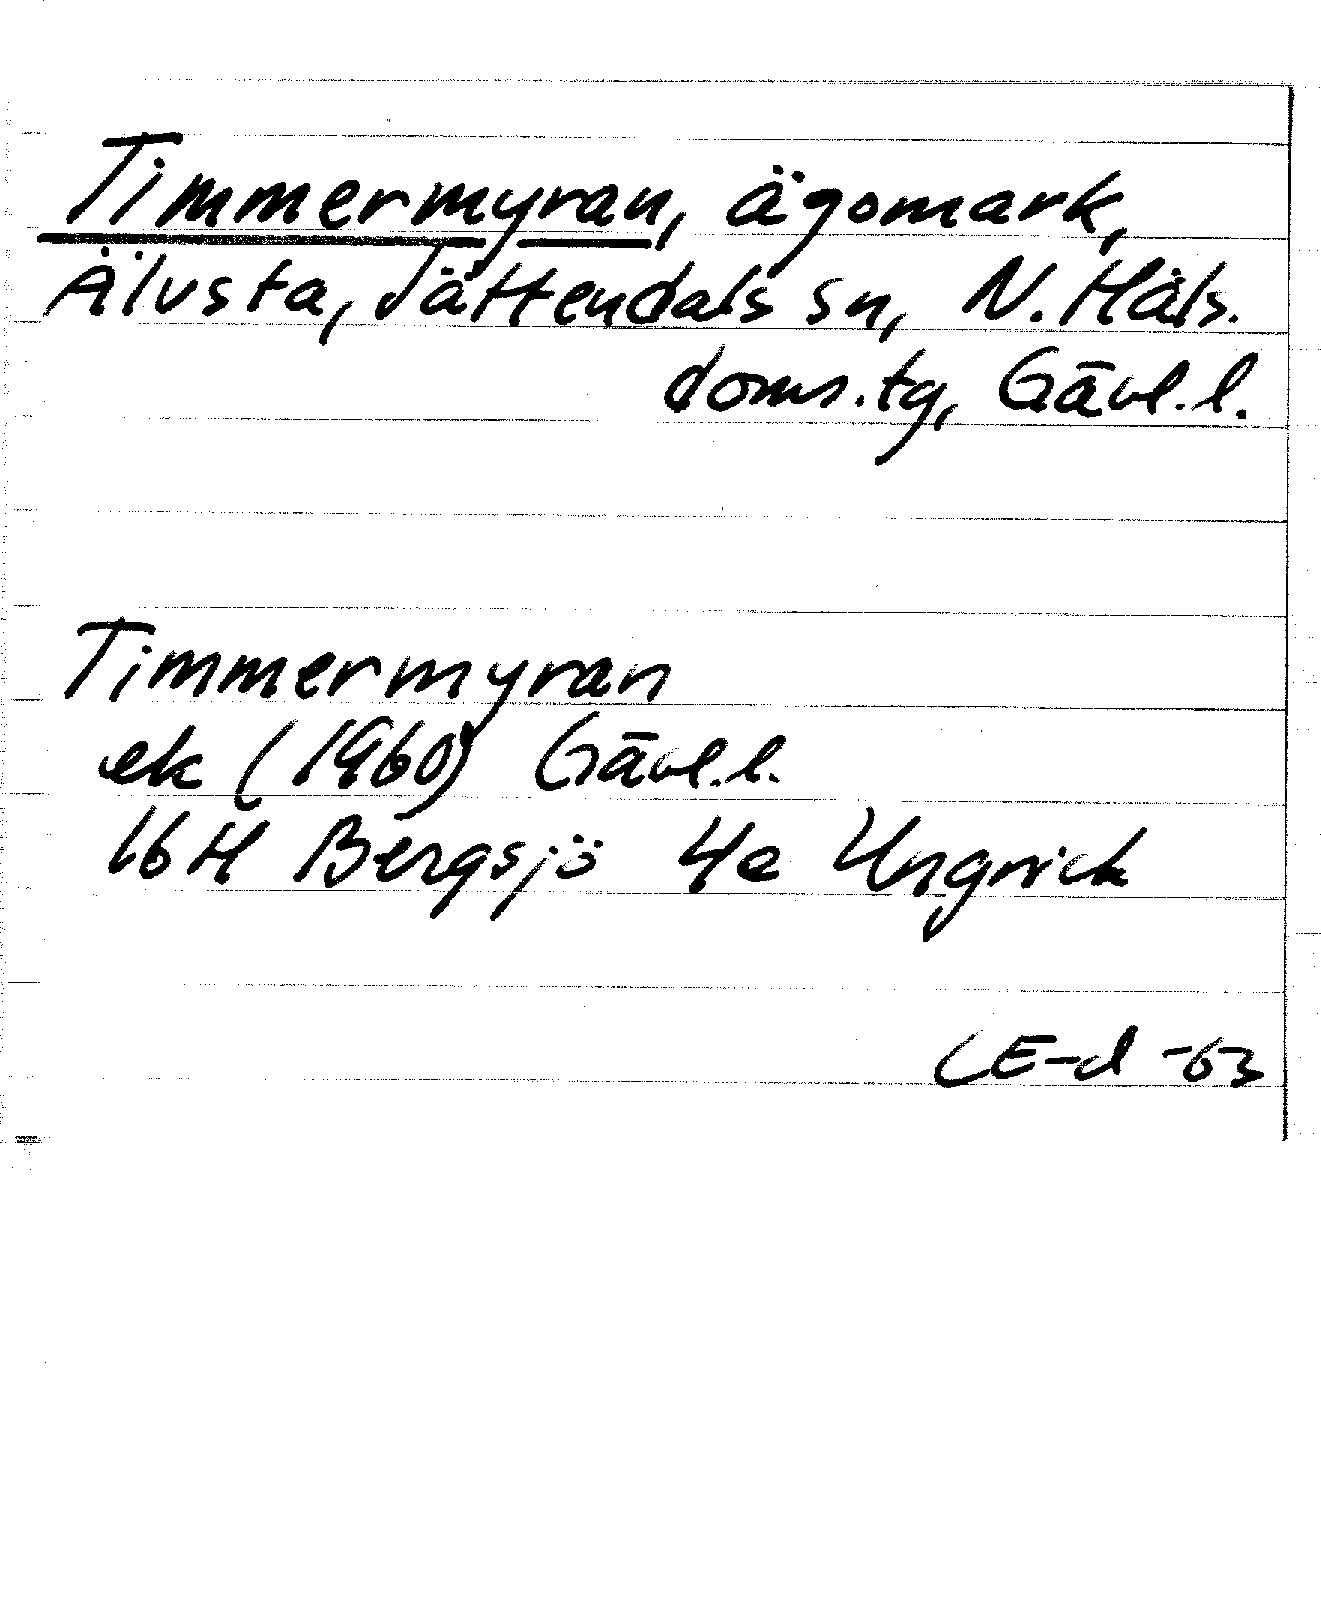 Timmermyran, ägomark,
Älvsta, Jättendals sn, N. Häls.
doms.tg, Gävl.l.
Timmermyran
ek (1960) Gävl.l.
16H Bergsjö 4e Ungvick
CE-d -63